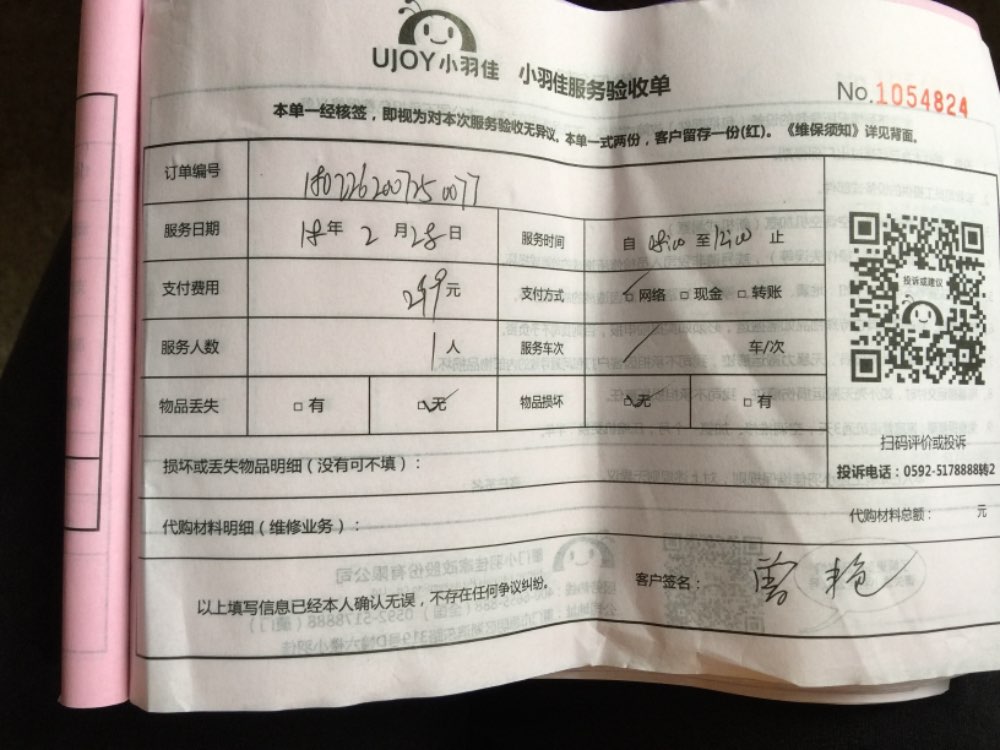 UJOY小羽佳 小羽佳服务验收单
No.1054824
本单一经核签，即视为对本次服务验收无异议。本单一式两份，客户留存一份(红)。《维保须知》详见背面。
订单编号 1802262007250077
服务日期 18年 2 月 28 日 服务时间 自 08:00 至 12:00 止
支付费用 299元 支付方式 □网络 □现金 □转账
服务人数 1人 服务车次 / 车/次
物品丢失 □有 ☑无 物品损坏 ☑无 □有
投诉或建议
扫码评价或投诉
投诉电话：0592-5178888转2
损坏或丢失物品明细（没有可不填）：
代购材料明细（维修业务）： 代购材料总额： 元
以上填写信息已经本人确认无误，不存在任何争议纠纷。 客户签名： 曾艳